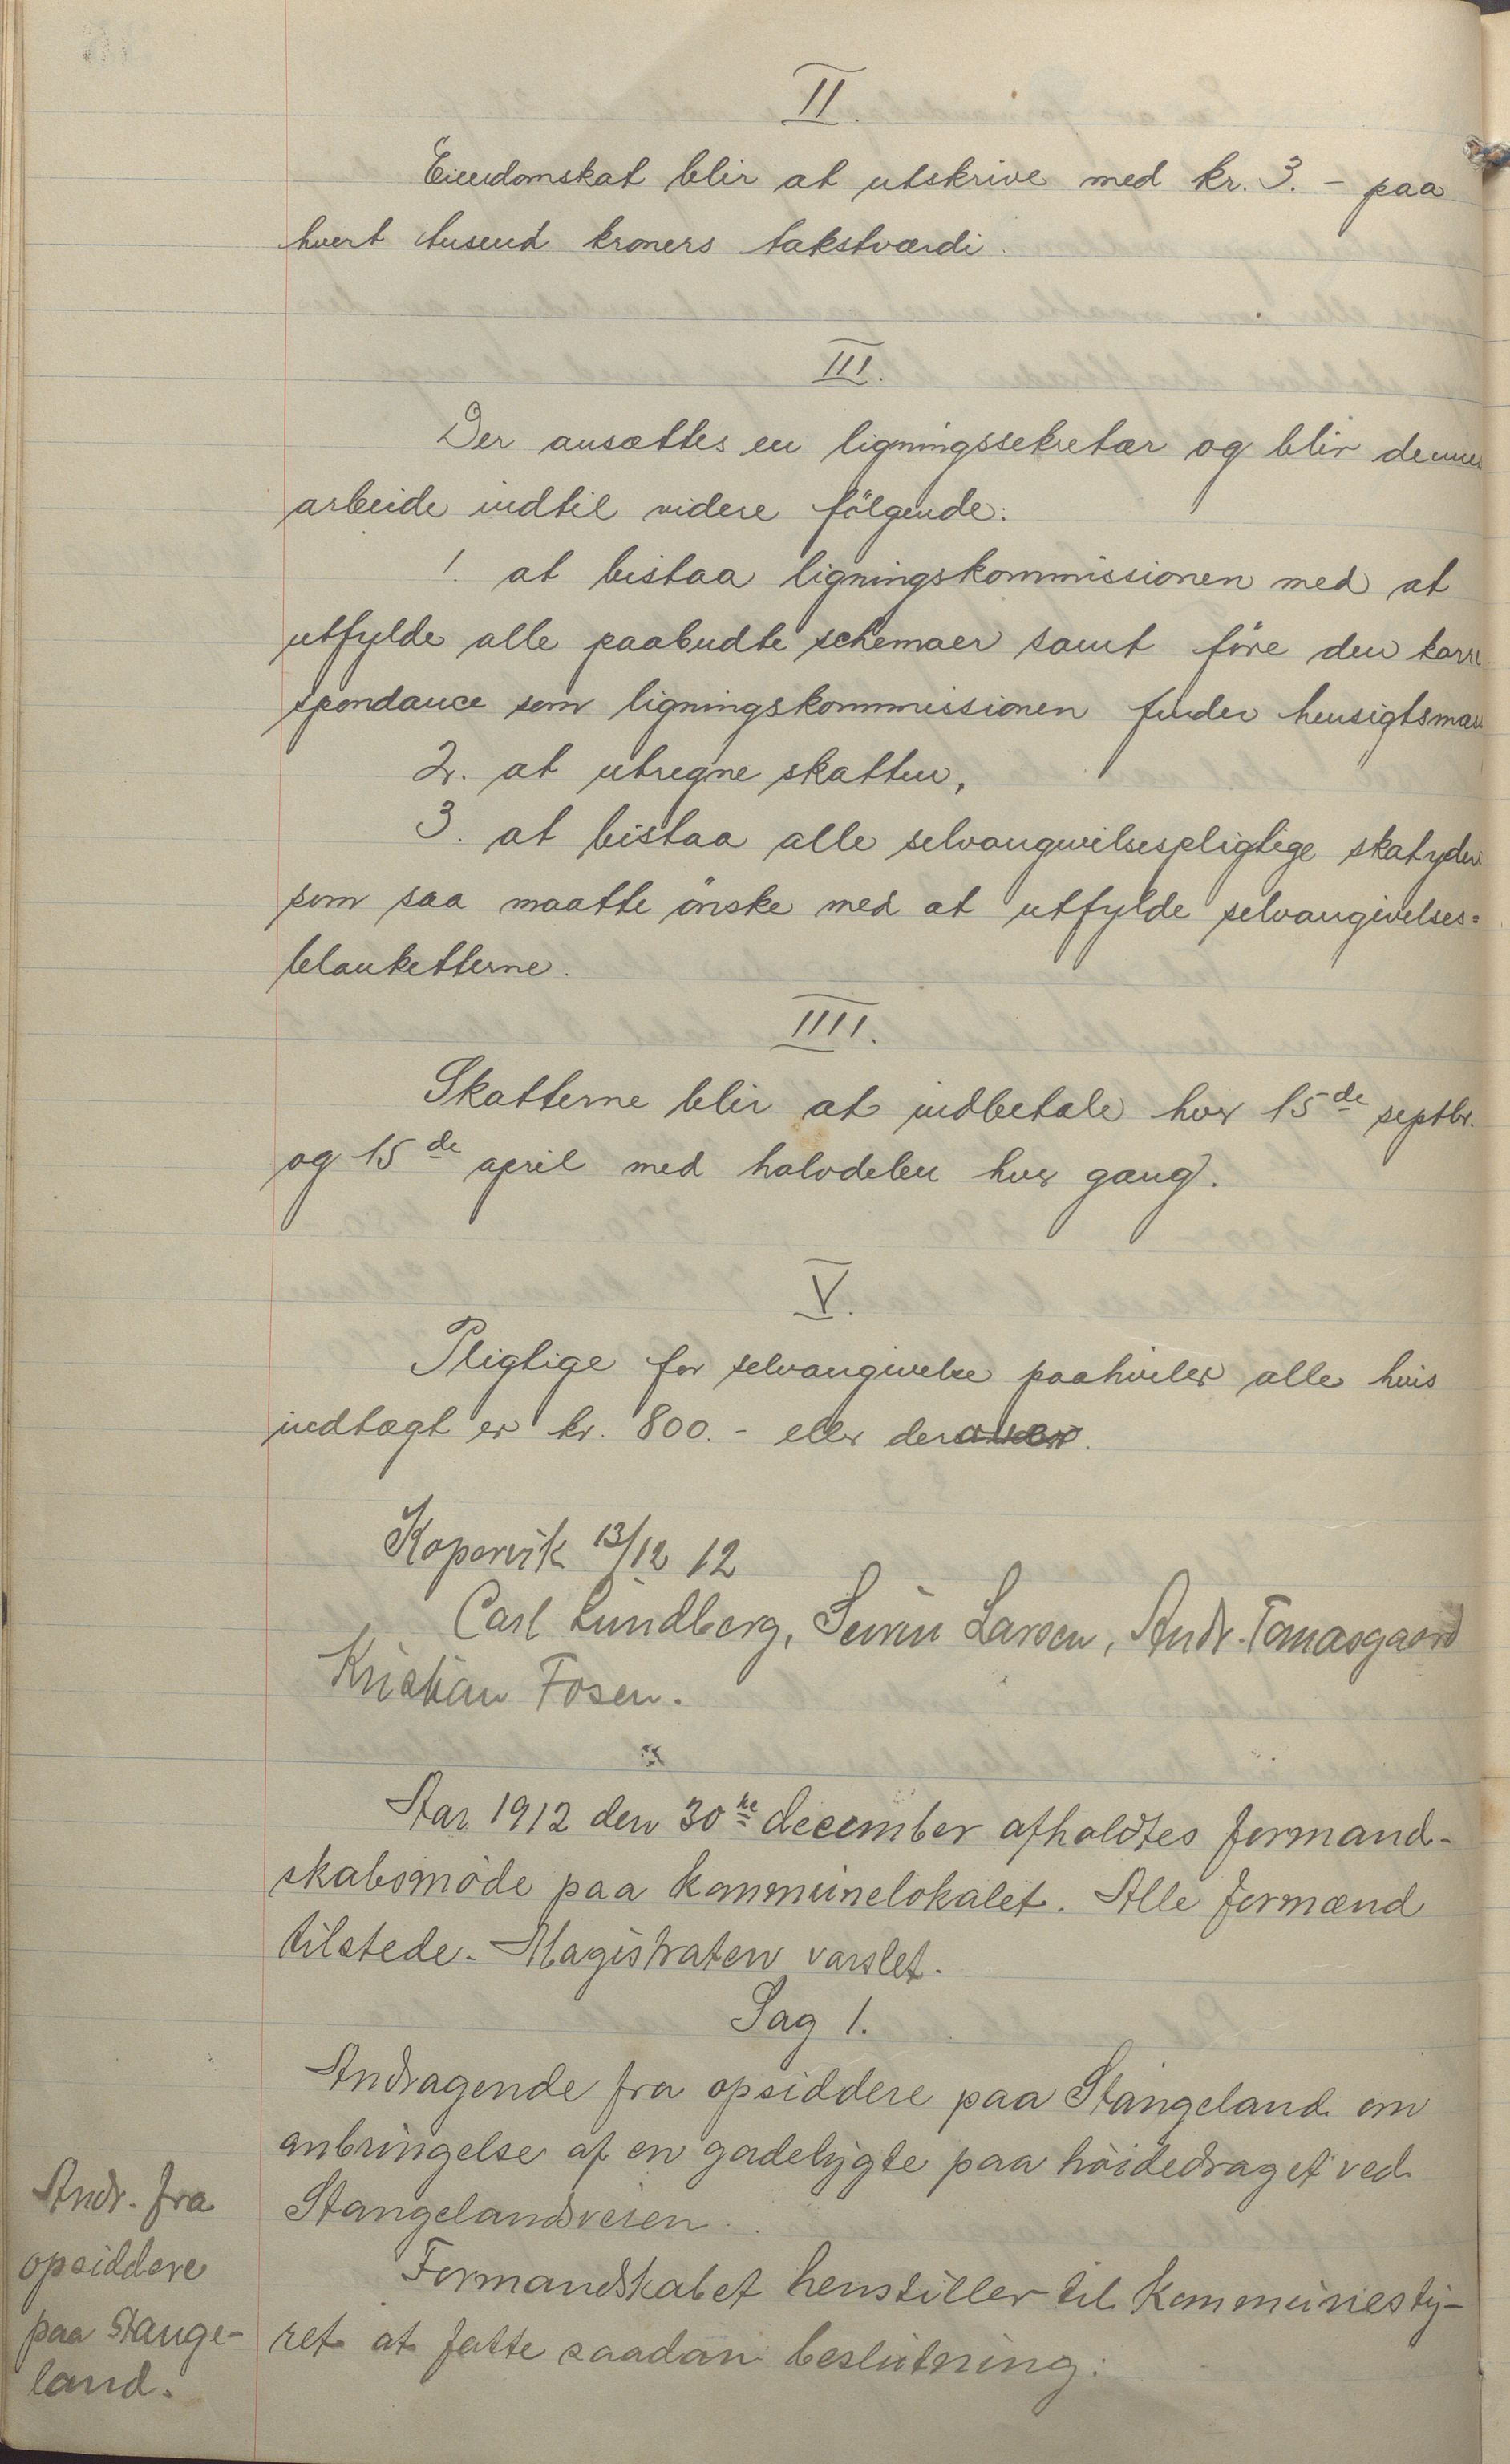 II.
Eiendomskat blir at utskrive med kr. 3. - paa
hvert tusend kroners takstværdi.
III.
Der ansættes en ligningssekretær og blir dennes
arbeide indtil videre følgende:
1. at bistaa ligningskommissionen med at
utfylde alle paabudte schemaer samt føre den korre
spondance som ligningskommissionen finder hensigtsmæs
2. at utregne skatten,
3. at bistaa alle selvangivelsespligtige skatydere
som saa maatte ønske med at utfylde selvangivelses=
blanketterne.
IIII.
Skatterne blir at indbetale hver 15de septbr.
og 15de april med halvdelen hver gang.
V.
Pligtige for selvangivelse paahviler alle hvis
indtægt er kr. 800. - eller der
Kopervik 13/12 12
Carl Lundberg, Sevrin Larsen, Andr. Tomasgaard
Kristian Fosen.
Aar 1912 den 30te december afholdtes formand-
skabsmøde paa kommunelokalet. Alle formænd
tilstede. Magistraten varslet.
Sag 1.
Andragende fra opsiddere paa Stangeland om
anbringelse af en gadelygte paa høidedraget ved
Stangelandsveien.
Formandskabet henstiller til kommunesty-
ret at fatte saadan beslutning:
Andr. fra
opsiddere
paa Stange-
land.